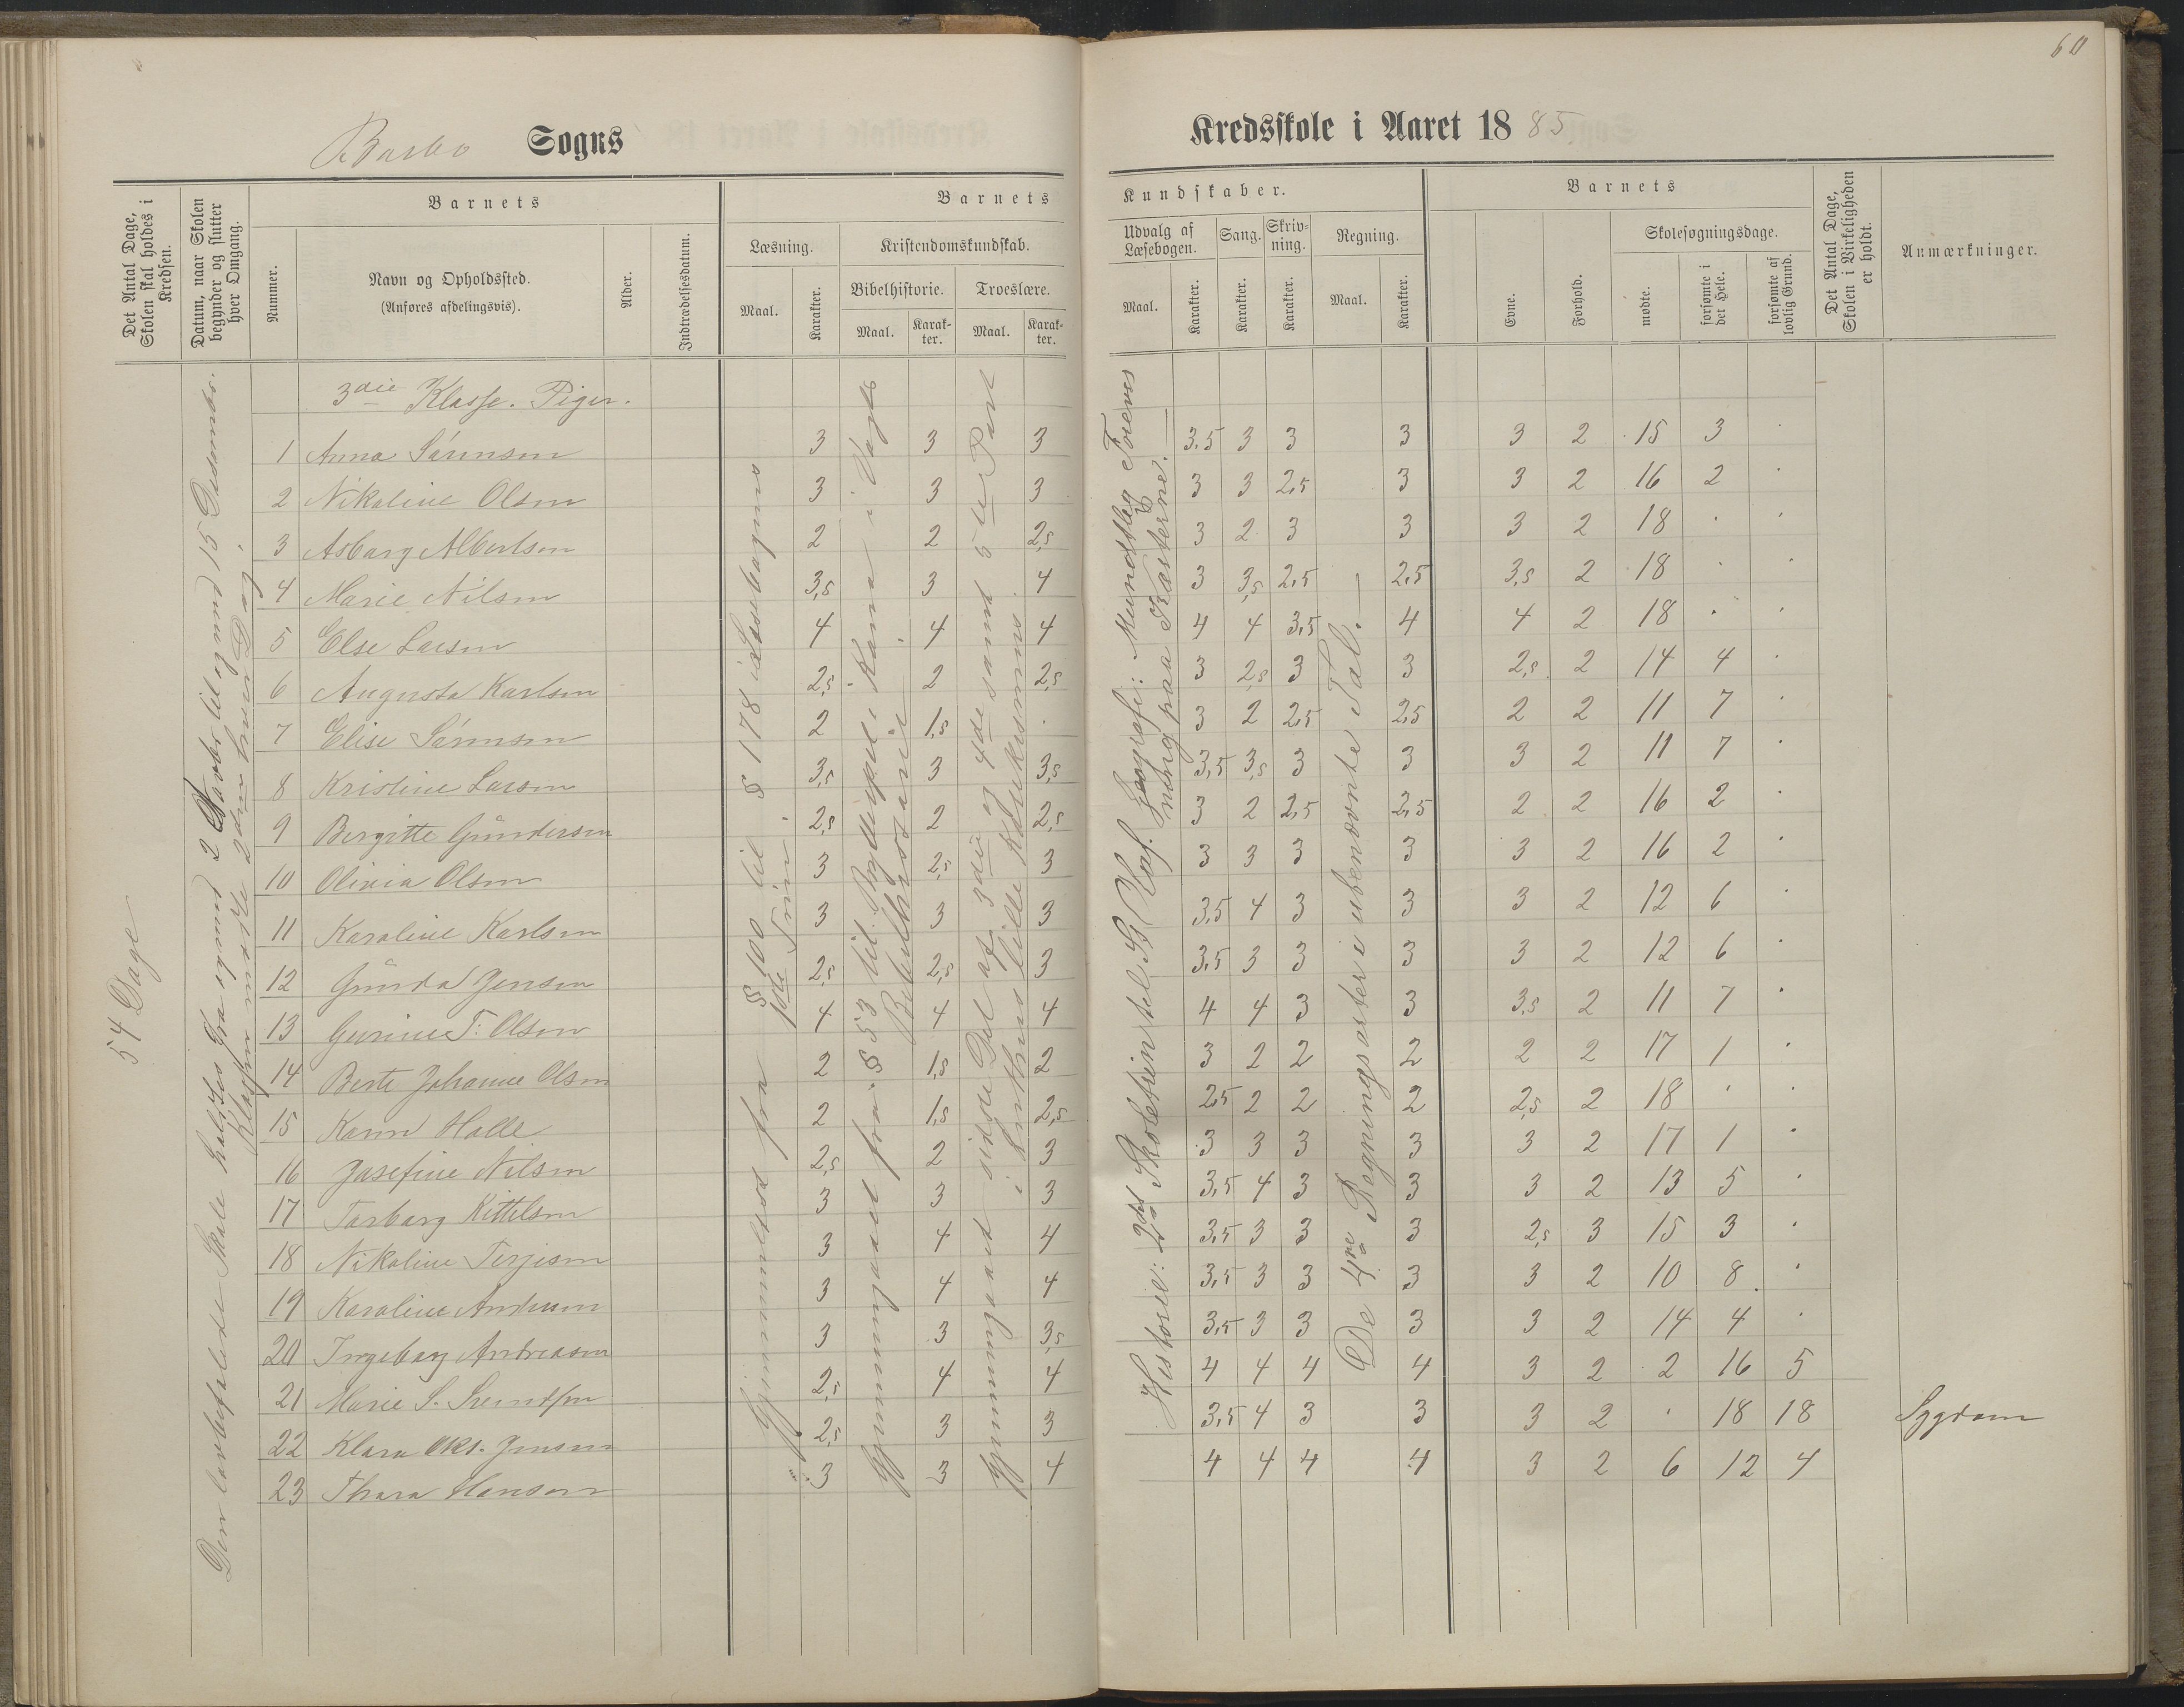 60
Barbo Sogns
Kredsskole i Aaret 1885
Det Antal Dage, Skolen skal holdes i Kredsen.
Datum, naar Skolen begynder og slutter hver Omgang.
Barnets
Nummer.
Navn og Opholdssted.
(Anføres afdelingsvis).
Alder.
Indtrædelsesdatum.
Barnets
Læsning.
Maal.
Karakter.
Kristendomskundskab.
Bibelhistorie.
Troeslære.
Maal.
Karakter.
Maal.
Karakter.
Kundskaber.
Udvalg af Læsebogen.
Sang.
Skrivning.
Regning.
Maal.
Karakter.
Karakter.
Karakter.
Maal.
Karakter.
Barnets
Evne.
Forhold.
Skolesøgningsdage.
mødte.
forsømte i det Hele.
forsømte af lovlig Grund.
Det Antal Dage, Skolen i Virkeligheden er holdt.
Anmærkninger.
54 Dage
15 Desember.
Klassen mødte 2den hver Dag.
§ 100 til § 178 i Læsebogens
1ste Trin.
Gjennemgaaet fra § 53 til
Bibelhistorie
Gjennemgaaet sidste Del af 3die og 4de samt 5te Part
i Luthers lille Katekismus.
Historie: 2det Skoletrin
Geografi: Mundtlig
paa Kasterne.
De 4re Regningsarter i ubenævnte Tal.
3die Klasse. Piger.
1 Anna Sørensen 3 3 3 3.5 3 3 3 3 2 15 3 .
2 Nikoline Olsen 3 3 3 3 3 2,5 3 3 2 16 2 .
3 Asborg Albertsen 2 2 2,5 3 2 3 3 3 2 18 . .
4 Marie Nilsen 3,5 3 4 3 3,5 2,5 2,5 3,5 2 18 . .
5 Else Larsen 4 4 4 4 4 3,5 4 4 2 18 . .
6 Augusta Karlsen 2,5 2 2,5 3 2,5 3 3 2,5 2 14 4 .
7 Elise Sørensen 2 1,5 . 3 2 2,5 2,5 2 2 11 7 .
8 Kristine Larsen 3,5 3 3,5 3,5 3,5 3 3 3 2 11 7 .
9 Bergitte Gundersen 2,5 2 2,5 3 2 2,5 2,5 2 2 16 2 .
10 Olivia Olsen 3 2,5 3 3 3 3 3 3 2 16 2 .
11 Karoline Karlsen 3 3 3 3,5 4 3 3 3 2 12 6 .
12 Gunda Jensen 2,5 2,5 3 3,5 3 3 3 3 2 12 6 .
13 Gurine T: Olsen 4 4 4 4 4 3 3 3,5 2 11 7 .
14 Berte Johanne Olsen 2 1,5 2 3 2 2 2 2 2 17 1 .
15 Karen Holle 2 1,5 2,5 2,5 2 2 2 2,5 2 18 . .
16 Josefine Nilsen 2,5 2 3 3 3 3 3 3 2 17 1 .
17 Torborg Kittilsen 3 3 3 3,5 4 3 3 3 2 13 5 .
18 Nikoline Terjesen 3 4 4 3,5 3 3 3 2,5 3 15 3 .
19 Karoline Andersen 3 4 4 3,5 3 3 3 3 2 10 8 .
20 Ingeborg Andreasen 3 3 3,5 3,5 3 3 3 3 2 14 4 .
21 Marie S. 2,5 4 4 4 4 4 4 3 2 2 16 5
22 Klara Okt. Jensen 2,5 3 3 3,5 4 3 3 3 2 . 18 18 Sygdom
23 Thora Hansen 3 3 4 4 4 4 4 3 2 6 12 4